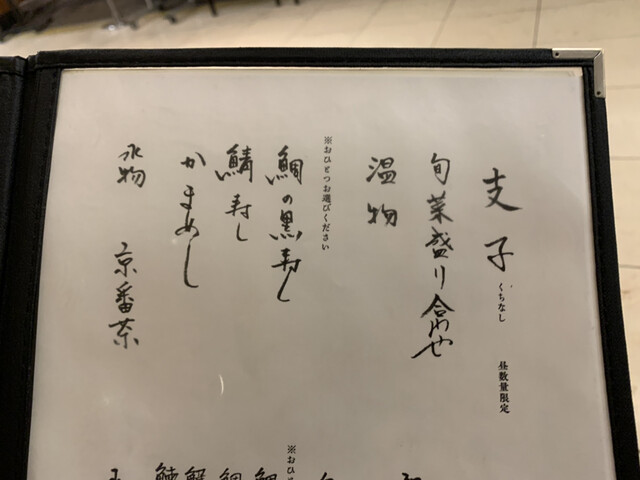 支子 くちなし 昼数量限定
旬菜盛り合わせ
温物
※おひとつお選びください
鯛の黒寿し
鯖寿し
かまめし
水物 京番茶
※おひ
鯛
鯛
蟹